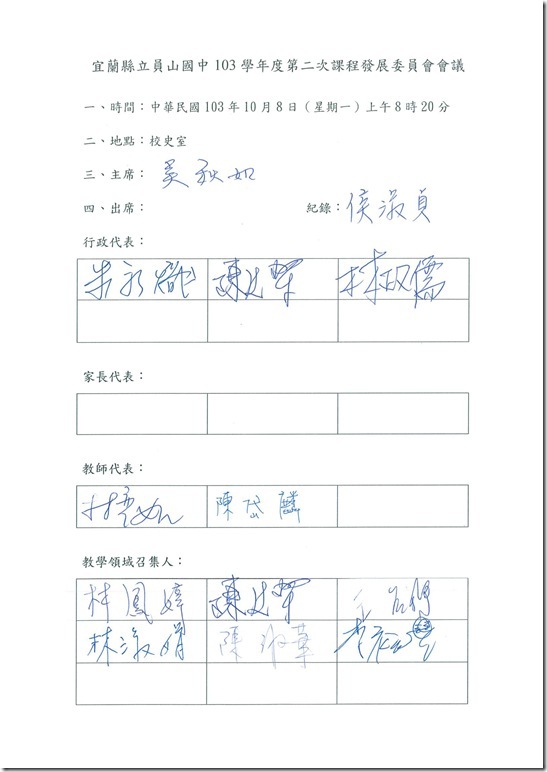 宜蘭縣立員山國中 103 學年度第二次課程發展委員會會議
一、時間：中華民國 103 年 10 月 8 日（星期一）上午 8 時 20 分
二、地點：校史室
三、主席： 吳秋如
四、出席： 紀錄：侯淑貞
行政代表：
朱永 林政儒
家長代表：
教師代表：
陳岱麟
教學領域召集人：
林鳳婷
林淑娟 陳淑華